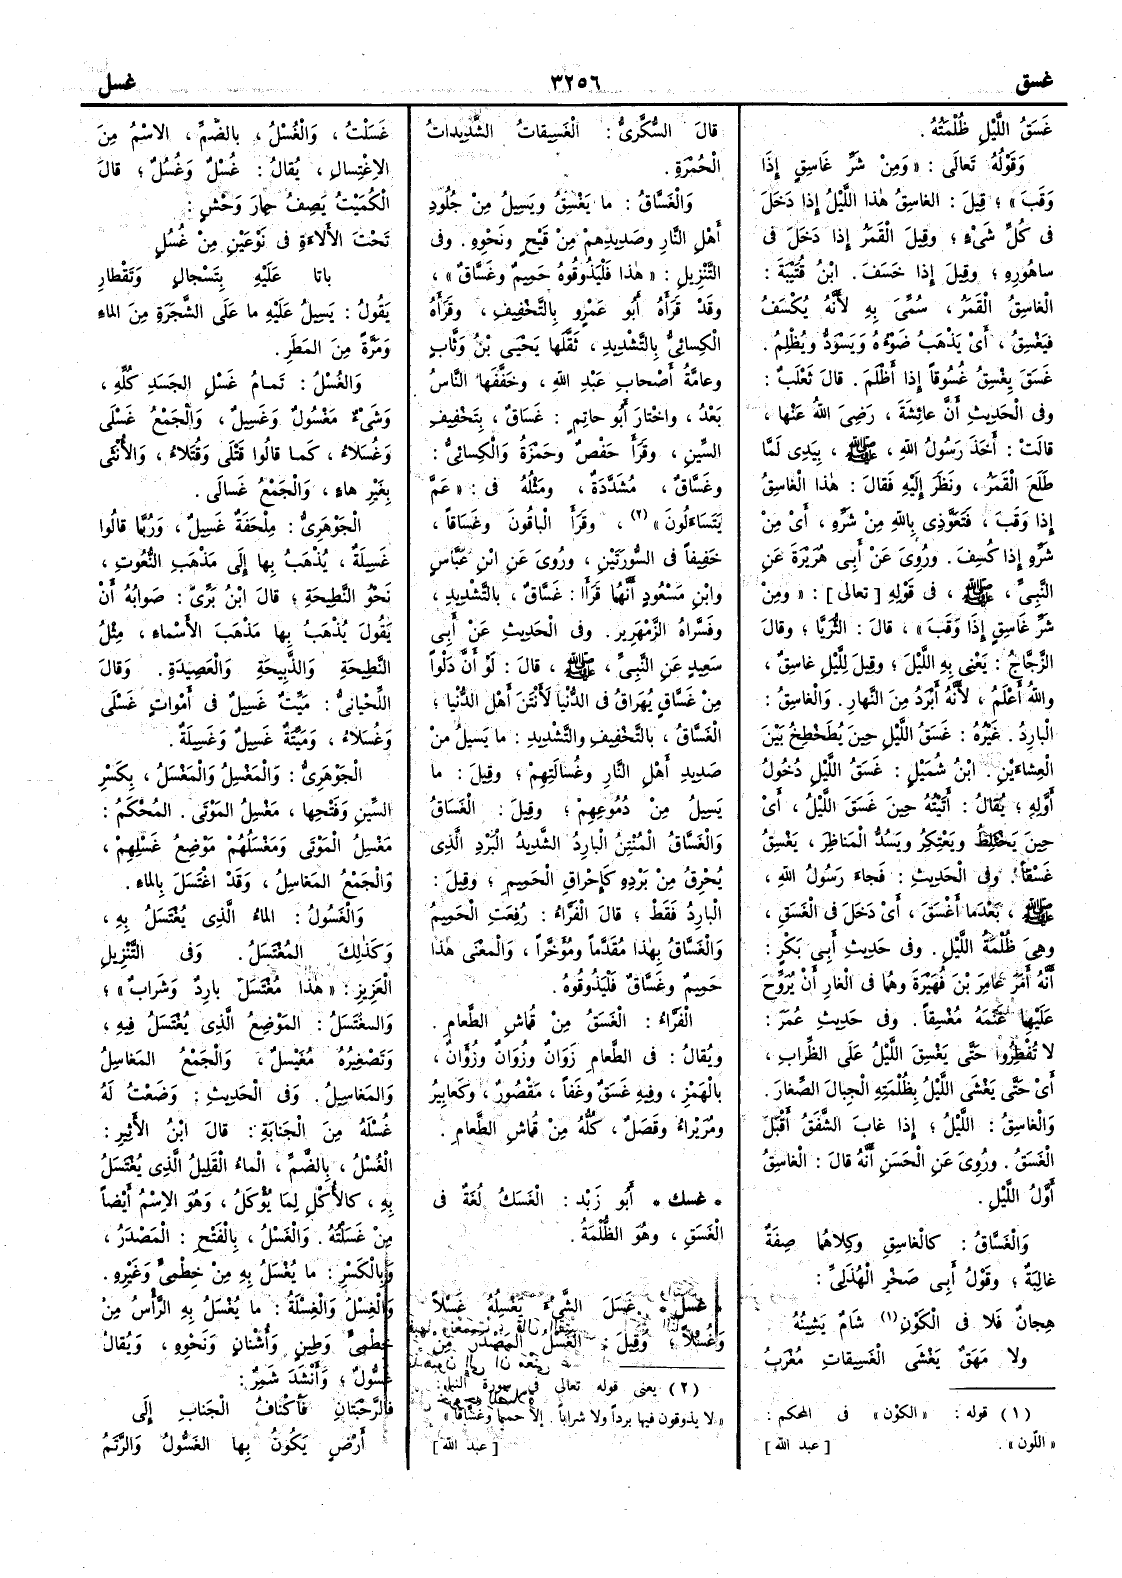 غسق
٣٢٥٦
غسل
غَسَقُ اللَّيْلِ ظُلْمَتُهُ .
وَقَوْلُهُ تَعالَى : « وَمِنْ شَرِّ غَاسِقٍ إِذَا
وَقَبَ » ؛ قِيلَ : الغاسِقُ هٰذا اللَّيْلُ إِذا دَخَلَ
فى كُلِّ شَىْءٍ ؛ وقِيلَ الْقَمَرُ إِذَا دَخَلَ فى
ساهُورِهِ ؛ وقِيلَ إِذا خَسَفَ . ابْنُ قُتَيْبَةَ :
الْغاسِقُ الْقَمَرُ ، سُمِّىَ بِهِ لأَنَّهُ يُكْسَفُ
فَيَغْسِقُ ، أَىْ يَذْهَبُ ضَوْءُهُ وَيَسْوَدُّ ويُظْلِمُ .
غَسَقَ يَغْسِقُ غُسُوقاً إِذا أَظْلَمَ . قالَ ثَعْلَبٌ :
وفى الْحَدِيثِ أَنَّ عائِشَةَ ، رَضِىَ اللهُ عَنْها ،
قالَتْ : أَخَذَ رَسُولُ اللهِ ، ﷺ ، بِيَدِى لَمَّا
طَلَعَ الْقَمَرُ ، ونَظَرَ إِلَيْهِ فَقالَ : هٰذا الْغاسِقُ
إِذا وَقَبَ ، فَتَعَوَّذِى بِاللهِ مِنْ شَرِّهِ ، أَىْ مِنْ
شَرِّهِ إِذا كُسِفَ . ورُوِىَ عَنْ أَبِى هُرَيْرَةَ عَنِ
النَّبِىِّ ، ﷺ ، فى قَوْلِهِ [ تعالى ] : « ومِنْ
شَرِّ غَاسِقٍ إِذَا وَقَبَ » ، قالَ : الثُّرَيَّا ؛ وقالَ
الزَّجَّاجُ : يَعْنِى بِهِ اللَّيْلَ ؛ وقِيلَ لِلَّيْلِ غاسِقٌ ،
واللهُ أَعْلَمُ ، لأَنَّهُ أَبْرَدُ مِنَ النَّهارِ . وَالْغاسِقُ :
الْبارِدُ . غَيْرُهُ : غَسَقُ اللَّيْلِ حِينَ يُطَخْطِخُ بَيْنَ
الْعِشاءَيْنِ . ابْنُ شُمَيْلٍ : غَسَقُ اللَّيْلِ دُخُولُ
أَوَّلِهِ ؛ يُقالُ : أَتَيْتُهُ حِينَ غَسَقَ اللَّيْلُ ، أَىْ
حِينَ يَخْتَلِطُ ويَعْتَكِرُ ويَسُدُّ الْمَناظِرَ ، يَغْسِقُ
غَسْقاً . وفى الْحَدِيثِ : فَجاءَ رَسُولُ اللهِ ،
ﷺ ، بَعْدَما أَغْسَقَ ، أَىْ دَخَلَ فى الْغَسَقِ ،
وهِىَ ظُلْمَةُ اللَّيْلِ . وفى حَدِيثِ أَبِى بَكْرٍ :
أَنَّهُ أَمَرَ عامِرَ بْنَ فُهَيْرَةَ وهُما فى الْغارِ أَنْ يُرَوِّحَ
عَلَيْها غَنَمَهُ مُغْسِقاً . وفى حَدِيثِ عُمَرَ :
لا تُفْطِرُوا حَتَّى يَغْسِقَ اللَّيْلُ عَلَى الظِّرابِ ،
أَىْ حَتَّى يَغْشَى اللَّيْلُ بِظُلْمَتِهِ الْجِبالَ الصِّغارَ .
وَالْغاسِقُ : اللَّيْلُ ؛ إِذا غابَ الشَّفَقُ أَقْبَلَ
الْغَسَقُ . ورُوِىَ عَنِ الْحَسَنِ أَنَّهُ قالَ : الْغاسِقُ
أَوَّلُ اللَّيْلِ .
وَالْغَسَّاقُ : كالْغاسِقِ وكِلاهُما صِفَةٌ
غالِبَةٌ ؛ وقَوْلُ أَبِى صَخْرٍ الْهُذَلِىِّ :
هِجانٌ فَلا فى الْكَوْنِ (١) شَامٌ يَشِينُهُ
ولا مَهَقٌ يَغْشَى الْغَسِيقاتِ مُغْرَبُ
(١) قوله : « الكوْن » فى المحكم :
« اللّون » .
[ عبد الله ]
قالَ السُّكَّرِىُّ : الْغَسِيقاتُ الشَّدِيداتُ
الْحُمْرَةِ .
وَالْغَسَّاقُ : ما يَغْسِقُ ويَسِيلُ مِنْ جُلُودِ
أَهْلِ النَّارِ وصَدِيدِهِمْ مِنْ قَيْحٍ ونَحْوِهِ . وفى
التَّنْزِيلِ : « هٰذا فَلْيَذُوقُوهُ حَمِيمٌ وغَسَّاقٌ » ،
وقَدْ قَرَأَهُ أَبُو عَمْرٍو بِالتَّخْفِيفِ ، وقَرَأَهُ
الْكِسائِىُّ بِالتَّشْدِيدِ ، ثَقَّلَها يَحْيَى بْنُ وَثَّابٍ
وعامَّةُ أَصْحابِ عَبْدِ اللهِ ، وخَفَّفَها النَّاسُ
بَعْدُ ، واخْتارَ أَبُو حاتِمٍ : غَسَاقٌ ، بِتَخْفِيفِ
السِّينِ ، وقَرَأَ حَفْصٌ وحَمْزَةُ وَالْكِسائِىُّ :
وغَسَّاقٌ ، مُشَدَّدَةً ، ومِثْلُهُ فى : « عَمَّ
يَتَسَاءَلُونَ » (٢) ، وقَرَأَ الْباقُونَ وغَسَاقاً ،
خَفِيفاً فى السُّورَتَيْنِ ، ورُوِىَ عَنِ ابْنِ عَبَّاسٍ
وابْنِ مَسْعُودٍ أَنَّهُما قَرَآ : غَسَّاقٌ ، بِالتَّشْدِيدِ ،
وفَسَّراهُ الزَّمْهَرِيرَ . وفى الْحَدِيثِ عَنْ أَبِى
سَعِيدٍ عَنِ النَّبِىِّ ، ﷺ ، قالَ : لَوْ أَنَّ دَلْواً
مِنْ غَسَّاقٍ يُهَراقُ فى الدُّنْيا لَأَنْتَنَ أَهْلَ الدُّنْيا ؛
الْغَسَّاقُ ، بالتَّخْفِيفِ والتَّشْدِيدِ : ما يَسِيلُ مِنْ
صَدِيدِ أَهْلِ النَّارِ وغُسَالَتِهِمْ ؛ وقِيلَ : ما
يَسِيلُ مِنْ دُمُوعِهِمْ ؛ وقِيلَ : الْغَسَاقُ
وَالْغَسَّاقُ الْمُنْتِنُ الْبارِدُ الشَّدِيدُ الْبَرْدِ الَّذِى
يُحْرِقُ مِنْ بَرْدِهِ كَإِحْراقِ الْحَمِيمِ ؛ وقِيلَ :
الْبارِدُ فَقَطْ ؛ قالَ الْفَرَّاءُ : رُفِعَتِ الْحَمِيمُ
وَالْغَسَّاقُ بِهٰذا مُقَدَّماً ومُؤَخَّراً ، وَالْمَعْنَى هٰذا
حَمِيمٌ وغَسَّاقٌ فَلْيَذُوقُوهُ .
الْفَرَّاءُ : الْغَسَقُ مِنْ قُماشِ الطَّعامِ .
ويُقالُ : فى الطَّعامِ زَوَانٌ وزُوَانٌ وزُؤَانٌ ،
بِالْهَمْزِ ، وفِيهِ غَسَقٌ وغَفاً ، مَقْصُورٌ ، وكَعابِيرُ
ومُرَيْراءُ وقَصَلٌ ، كُلُّهُ مِنْ قُماشِ الطَّعامِ .
* غسك * أَبُو زَيْدٍ : الْغَسَكُ لُغَةٌ فى
الْغَسَقِ ، وهُوَ الظُّلْمَةُ .
* غسل * غَسَلَ الشَّىْءَ يَغْسِلُهُ غَسْلاً
وَغُسْلاً ؛ وقِيلَ : الْغَسْلُ الْمَصْدَرُ مِنْ
(٢) يعنى قوله تعالى فى سورة النبإ :
« لا يذوقون فيها برداً ولا شراباً . إلاّ حميماً وغسَّاقاً »
[ عبد الله ]
غَسَلْتُ ، وَالْغُسْلُ ، بِالضَّمِّ ، الاسْمُ مِنَ
الاِغْتِسالِ ، يُقالُ : غُسْلٌ وغُسُلٌ ؛ قالَ
الْكُمَيْتُ يَصِفُ حِمارَ وَحْشٍ :
تَحْتَ الْأَلَاءَةِ فى نَوْعَيْنِ مِنْ غُسُلٍ
باتا عَلَيْهِ بِتَسْجالٍ وَتَقْطارِ
يَقُولُ : يَسِيلُ عَلَيْهِ ما عَلَى الشَّجَرَةِ مِنَ الماءِ
وَمَرَّةً مِنَ المَطَرِ .
وَالغُسْلُ : تَمامُ غَسْلِ الجَسَدِ كُلِّهِ ،
وَشَىْءٌ مَغْسُولٌ وغَسِيلٌ ، وَالْجَمْعُ غَسْلَى
وَغُسَلاءُ ، كَما قالُوا قَتْلَى وَقُتَلاءُ ، وَالْأُنْثَى
بِغَيْرِ هاءٍ ، وَالْجَمْعُ غَسالَى .
الْجَوْهَرِىُّ : مِلْحَفَةٌ غَسِيلٌ ، وَرُبَّما قالُوا
غَسِيلَةٌ ، يُذْهَبُ بِها إِلَى مَذْهَبِ النُّعُوتِ ،
نَحْوُ النَّطِيحَةِ ؛ قالَ ابْنُ بَرِّىّ : صَوابُهُ أَنْ
يَقُولَ يُذْهَبُ بِها مَذْهَبَ الْأَسْماءِ ، مِثْلُ
النَّطِيحَةِ وَالذَّبِيحَةِ وَالْعَصِيدَةِ . وَقالَ
اللِّحْيانِىُّ : مَيِّتٌ غَسِيلٌ فى أَمْواتٍ غَسْلَى
وَغُسَلاءَ ، وَمَيِّتَةٌ غَسِيلٌ وَغَسِيلَةٌ .
الْجَوْهَرِىُّ : وَالْمَغْسِلُ وَالْمَغْسَلُ ، بِكَسْرِ
السِّينِ وَفَتْحِها ، مَغْسِلُ المَوْتَى . المُحْكَمُ :
مَغْسِلُ الْمَوْتَى وَمَغْسَلُهُمْ مَوْضِعُ غَسْلِهِمْ ،
وَالْجَمْعُ المَغاسِلُ ، وَقَدْ اغْتَسَلَ بِالْماءِ .
وَالْغَسُولُ : الماءُ الَّذِى يُغْتَسَلُ بِهِ ،
وَكَذٰلِكَ المُغْتَسَلُ . وَفى التَّنْزِيلِ
الْعَزِيزِ : « هٰذَا مُغْتَسَلٌ بارِدٌ وَشَرابٌ » ؛
وَالمغْتَسَلُ : المَوْضِعُ الَّذِى يُغْتَسَلُ فِيهِ ،
وَتَصْغِيرُهُ مُغَيْسِلٌ ، وَالْجَمْعُ المَغَاسِلُ
وَالمَغاسِيلُ . وَفى الْحَدِيثِ : وَضَعْتُ لَهُ
غُسْلَهُ مِنَ الْجَنابَةِ : قالَ ابْنُ الأَثِيرِ :
الْغُسْلُ ، بِالضَّمِّ ، الْماءُ الْقَلِيلُ الَّذِى يُغْتَسَلُ
بِهِ ، كالأُكْلِ لِمَا يُؤْكَلُ ، وَهُوَ الاِسْمُ أَيْضاً
مِنْ غَسَلْتُهُ . وَالْغَسْلُ ، بِالْفَتْحِ : الْمَصْدَرُ ،
وَبِالْكَسْرِ : ما يُغْسَلُ بِهِ مِنْ خِطْمِىٍّ وَغَيْرِهِ .
وَالْغِسْلُ وَالْغِسْلَةُ : ما يُغْسَلُ بِهِ الرَّأْسُ مِنْ
خِطْمِىٍّ وَطِينٍ وَأُشْنانٍ وَنَحْوِهِ ، وَيُقالُ
غَسُّولٌ ؛ وَأَنْشَدَ شَمِرٌ :
فَالرَّحْبَتَانِ فَأَكْنافُ الْجَنابِ إِلَى
أَرْضٍ يَكُونُ بِها الْغَسُّولُ وَالرَّتَمُ